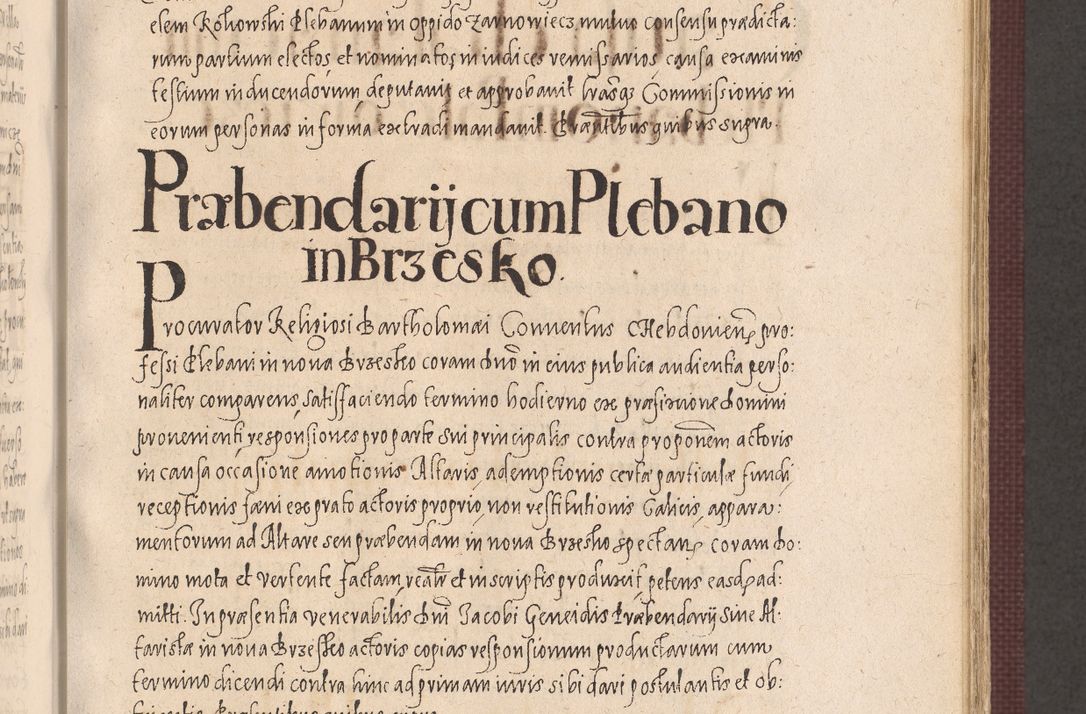 elem Kotowski Plebanum in oppido Zarnowiecz mutuo consensu prædicta:
rum partium electos et nominatos in iudices remissarios causa examinis
testium inducendorum deputavit et approbavit lrasqz Commissionis in
eorum personas in forma extradi mandavit. Præntibus quibus supra.
Præbendarij cum Plebano
in Brzesko.
Procurator Religiosi Bartholomæi Conventus Hebdovien pro:
fessi Plebani in nova Brzesko coram dno in eius publica audientia perso:
naliter comparens, satisfaciendo termino hodierno ex præfixione domini
provenienti, responsiones pro parte sui principalis contra proponem actoris
in causa occasione amotionis Altaris, ademptionis certæ particulæ fundi,
receptionis fæni ex prato actoris proprio, non restitutionis Calicis, appara:
mentorum ad Altare seu præbendam in nova Brzesko spectan coram do:
mino mota et vertente factam, realr et in scriptis produxit, petens easdp ad:
mitti. In præsentia venerabilis dni Jacobi Geneidis Præbendarij sive Al:
taristæ in nova Brzesko actoris copias responsionum productarum cum
termino dicendi contra hinc ad primam iuris sibi dari postulantis et ob: